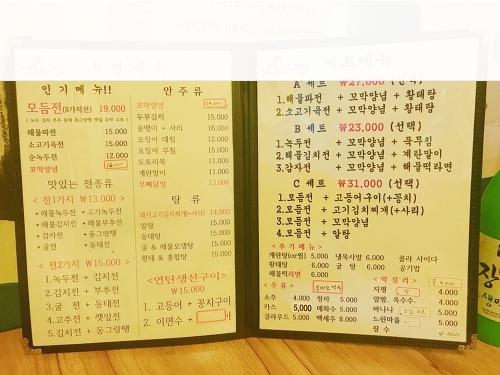 인기메뉴!!
모듬전(8가지전) 19.000
해물파전 15.000
소고기육전 15.000
순녹두전 12.000
꼬막양념
맛있는 전종류
< 전1가지 ₩13.000 >
* 해물녹두전 * 고기녹두전
* 해물김치전 * 해물부추전
* 감자전 * 동그랑땡
* 굴전 * 동태전
< 전2가지 ₩15.000 >
1. 녹두전 + 김치전
2. 김치전 + 부추전
3. 굴전 + 동태전
4. 고추전 + 깻잎전
5. 김치전 + 동그랑땡
안주류
꼬막양념
두부김치 15.000
골뱅이 + 사리 16.000
오징어 데침 12.000
오징어 무침 15.000
도토리묵 11.000
계란말이 11.000
무뼈닭발 13.000
탕류
돼지고기김치찌개(+사리) 14.000
알탕 15.000
동태탕 15.000
굴 & 해물오뎅탕 15.000
황태 & 홍합탕 15.000
<연탄생선구이>
₩15.000
1. 고등어 + 꽁치구이
2. 이면수 +
세트메뉴
A 세트 ₩27,000 (선택)
1.해물파전 + 꼬막양념 + 황태탕
2.소고기육전 + 꼬막양념 + 황태탕
B 세트 ₩23,000 (선택)
1.녹두전 + 꼬막양념 + 묵무침
2.해물김치전 + 꼬막양념 + 계란말이
3.감자전 + 꼬막양념 + 해물떡라면
C 세트 ₩31,000 (선택)
1.모듬전 + 고등어구이(+꽁치)
2.모듬전 + 고기김치찌개(+사리)
3.모듬전 + 꼬막양념
4.모듬전 + 알탕
< 추가메뉴 >
계란탕(or찜) 5.000 냉묵사발 6.000 콜라 사이다
황태탕 6.000 굴탕 6.000 공기밥
해물떡라면 6.000
< 주류 > < 막걸리 >
소주 4.000 청하 5.000 지평 4.000
가스 5,000 매화수 5.000 알밤. 옥수수. 4.000
클라우드 5.000 백세주 8.000 바나나
느린마을 5.000
잣수 4.000